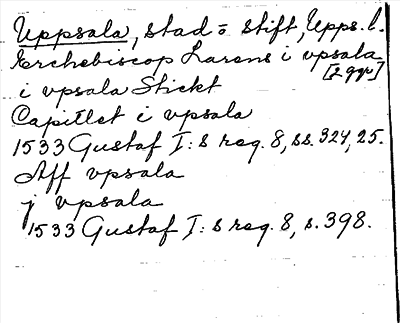 Uppsala, stad o stift, Upps. l.
Erchebiscop Larens i vpsala
[2 ggr]
i vpsala Stickt
Capittlet i vpsala
1533 Gustaf I:s reg. 8, ss. 324, 25.
Aff vpsala
j vpsala
1533 Gustaf I:s reg. 8, s. 398.